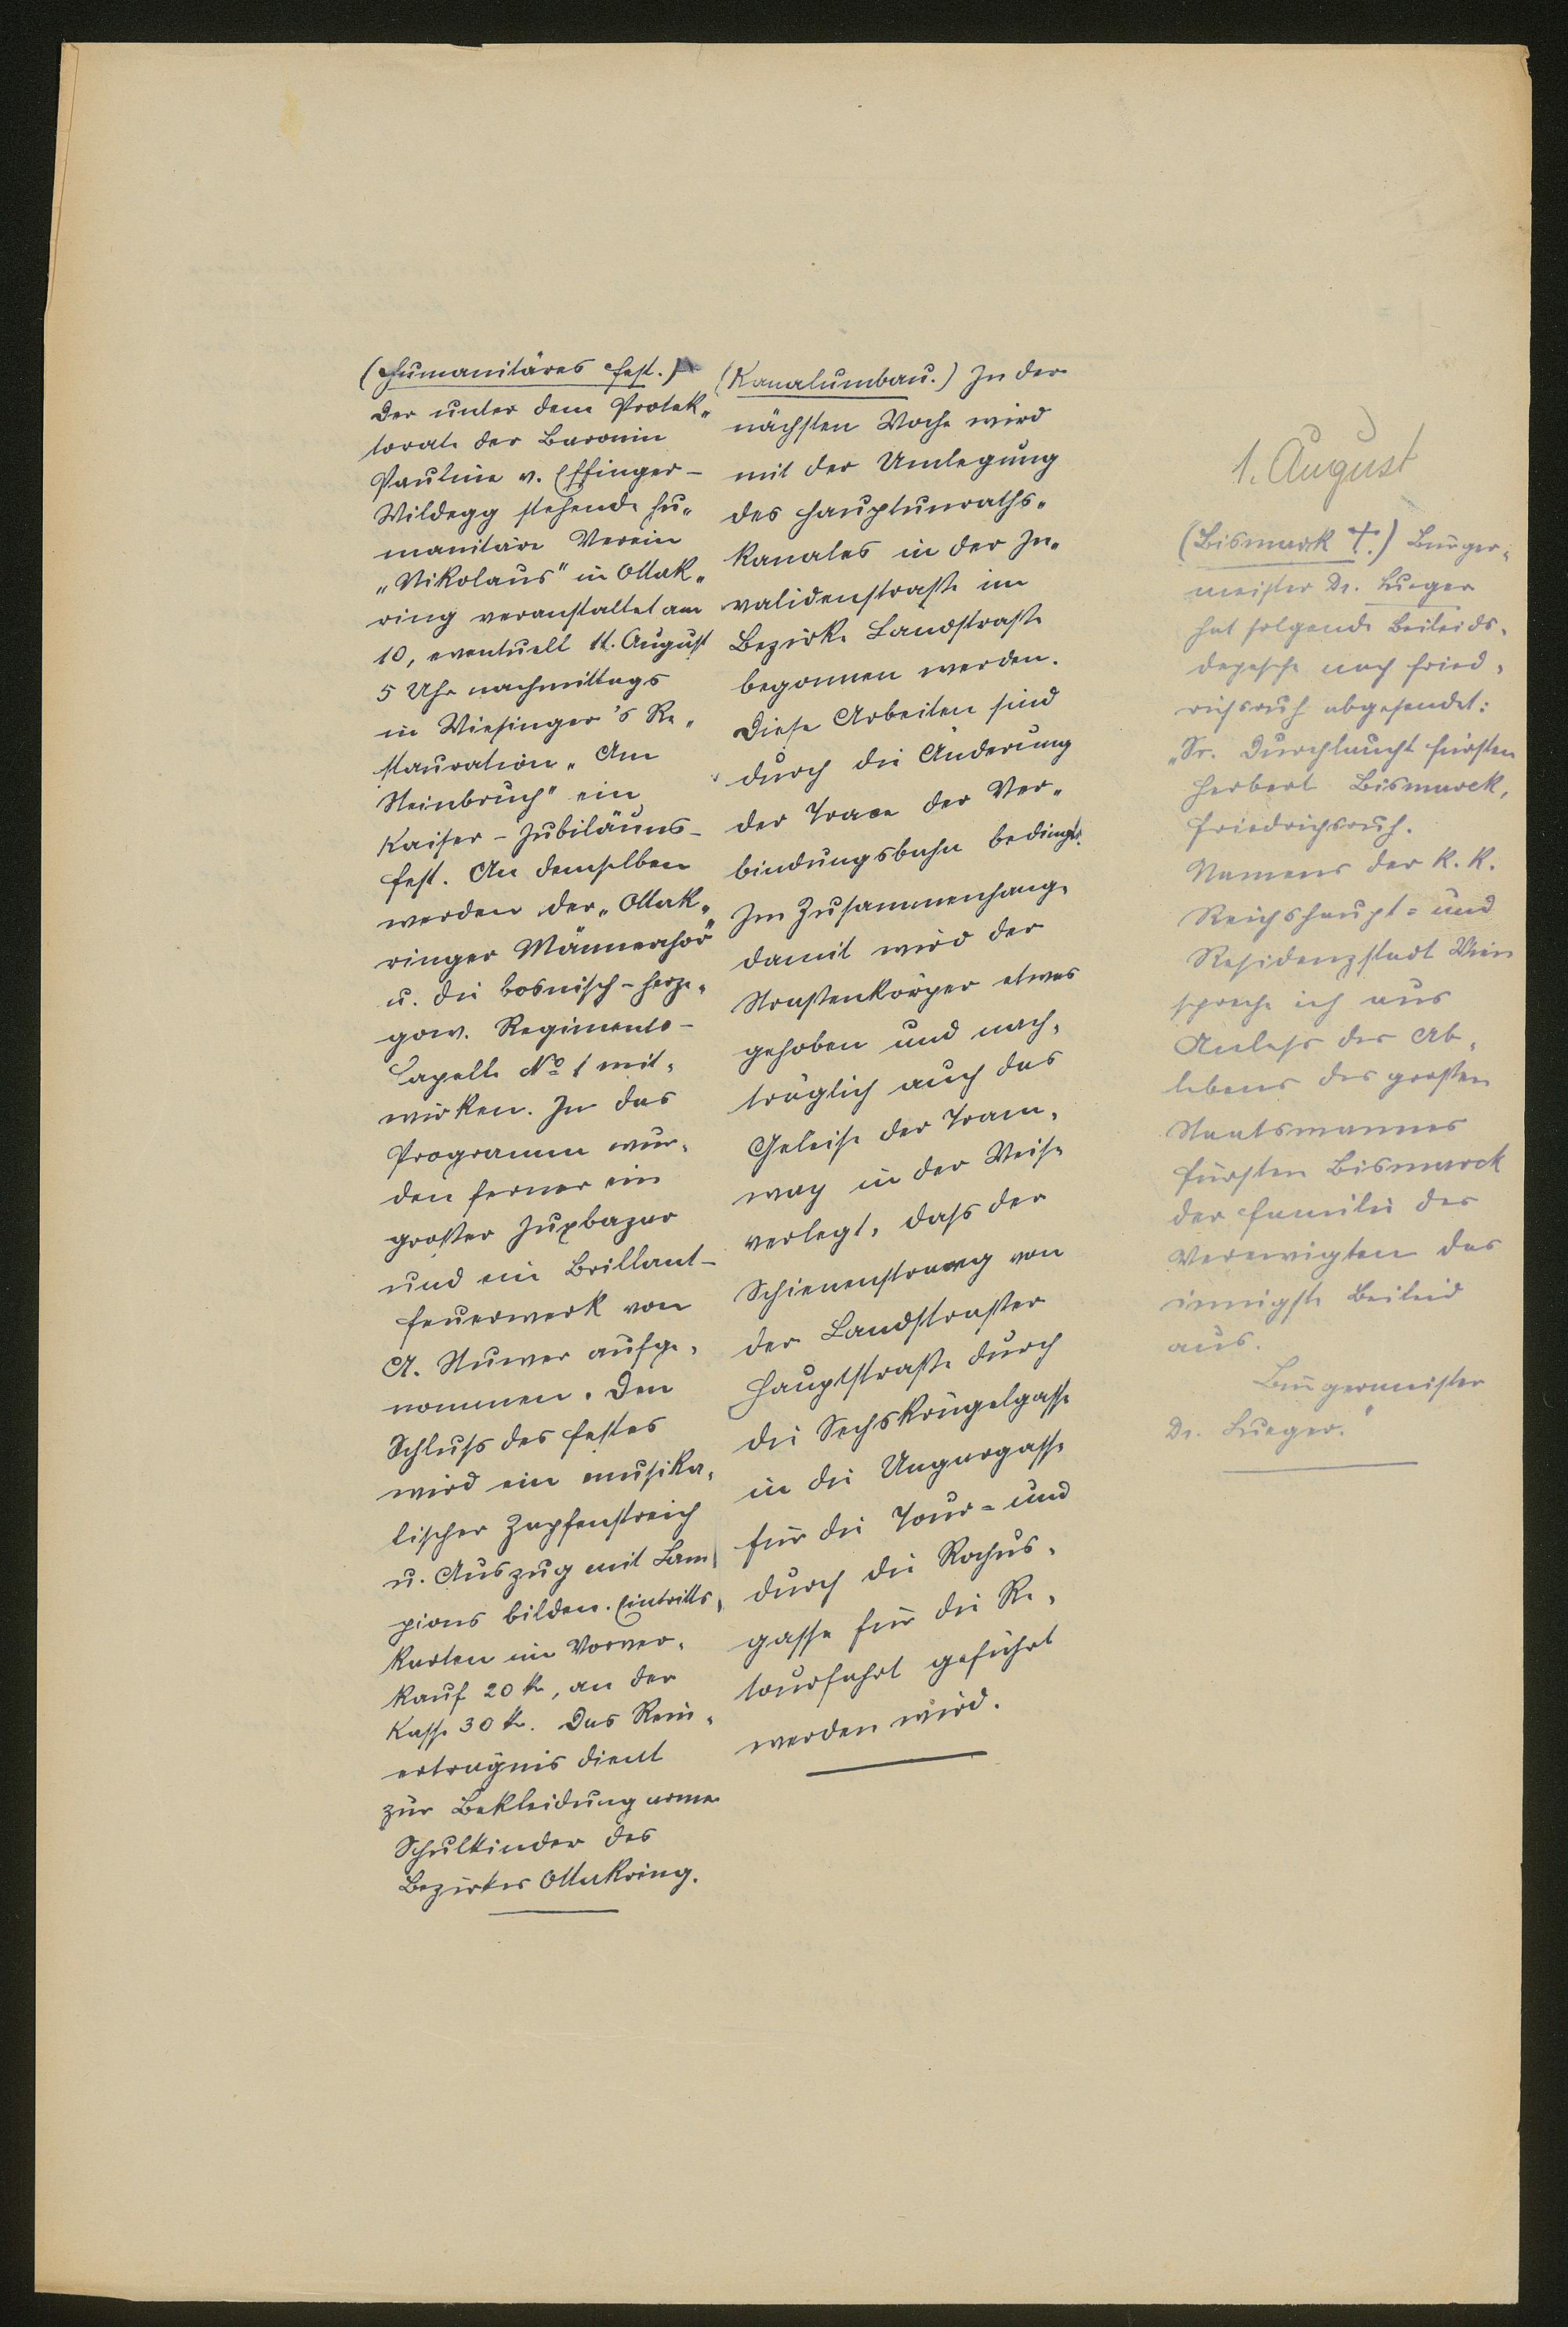 (Humanitäres Fest.)
Der unter dem Protek-
torate der Baronin
Pauline v. Effinger-
Wildegg stehende hu-
manitäre Verein
„Nikolaus" in Ottak-
ring veranstaltet am
10, eventuell 11. August
5 Uhr nachmittags
in Wiesinger's Re-
stauration „Am
Steinbruch" ein
Kaiser-Jubiläums-
fest. An demselben
werden der „Ottak-
ringer Männerchor"
u. die bosnisch-herze-
gow. Regiments-
Capelle No 1 mit-
wirken. In das
Programm wur-
den ferner ein
großer Juxbazar
und ein Brillant-
feuerwerk von
A. Stuwer aufge-
nommen. Den
Schluß des Festes
wird ein musika-
lischer Zapfenstreich
u. Auszug mit Lam
pions bilden. Eintritts-
karten im Vorver-
kauf 20 kr, an der
Kasse 30 kr. Das Rein-
erträgnis dient
zur Bekleidung armer
Schulkinder des
Bezirkes Ottakring.
(Kanalumbau.) In der
nächsten Woche wird
mit der Umlegung
des Hauptunraths-
kanales in der In-
validenstraße im
Bezirke Landstraße
begonnen werden.
Diese Arbeiten sind
durch die Änderung
der Trace der Ver-
bindungsbahn bedingt.
Im Zusammenhange
damit wird der
Straßenkörper etwas
gehoben und nach-
träglich auch das
Geleise der Tram-
way in der Weise
verlegt, daß der
Schienenstrang von
der Landstraßer
Hauptstraße durch
die Sechskrügelgasse
in die Ungargasse
für die Tour- und
durch die Rochus-
gasse für die Re-
tourfahrt geführt
werden wird.
1. August
(Bismark †.) Bürger-
meister Dr. Lueger
hat folgende Beileids-
depesche nach Fried-
richsruh abgesendet:
„Sr. Durchlaucht Fürsten
Herbert Bismarck,
Friedrichsruh.
Namens der k. k.
Reichshaupt- und
Residenzstadt Wien
spreche ich aus
Anlaß des Ab-
lebens des großen
Staatsmannes
Fürsten Bismarck
der Familie des
Verewigten das
innigste Beileid
aus.
Bürgermeister
Dr. Lueger."